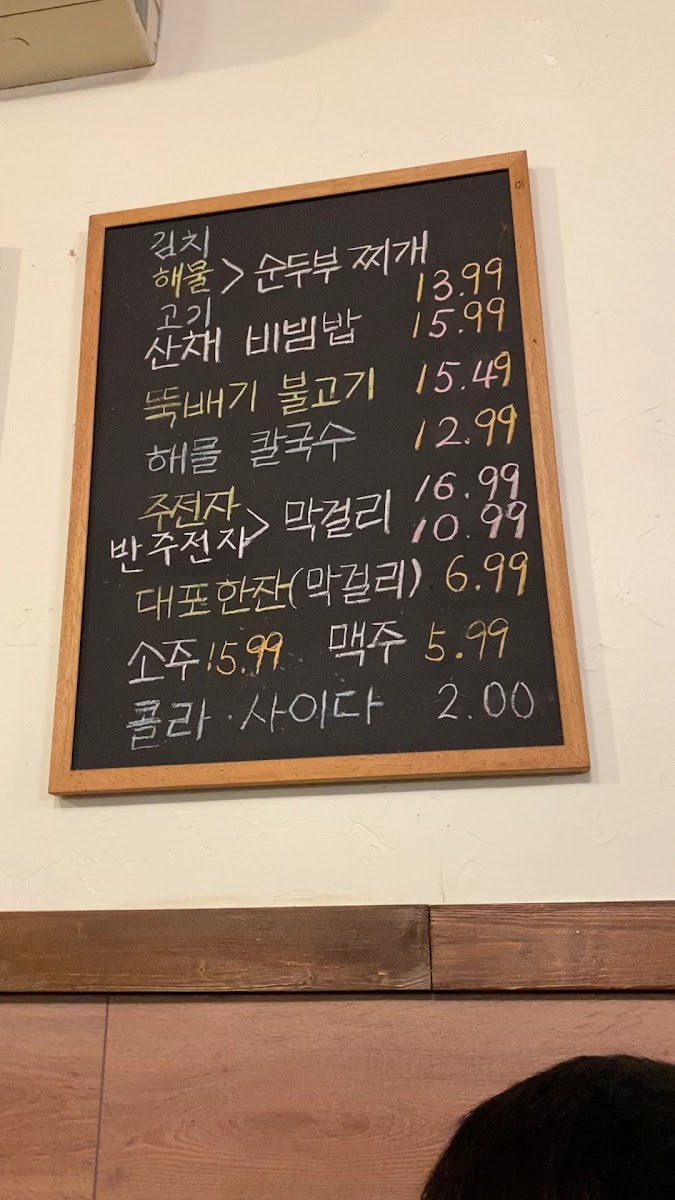 김치
해물 > 순두부 찌개 13.99
고기
산채 비빔밥 15.99
뚝배기 불고기 15.49
해물 칼국수 12.99
주전자 16.99
반주전자 > 막걸리 10.99
대포한잔(막걸리) 6.99
소주 15.99 맥주 5.99
콜라 · 사이다 2.00